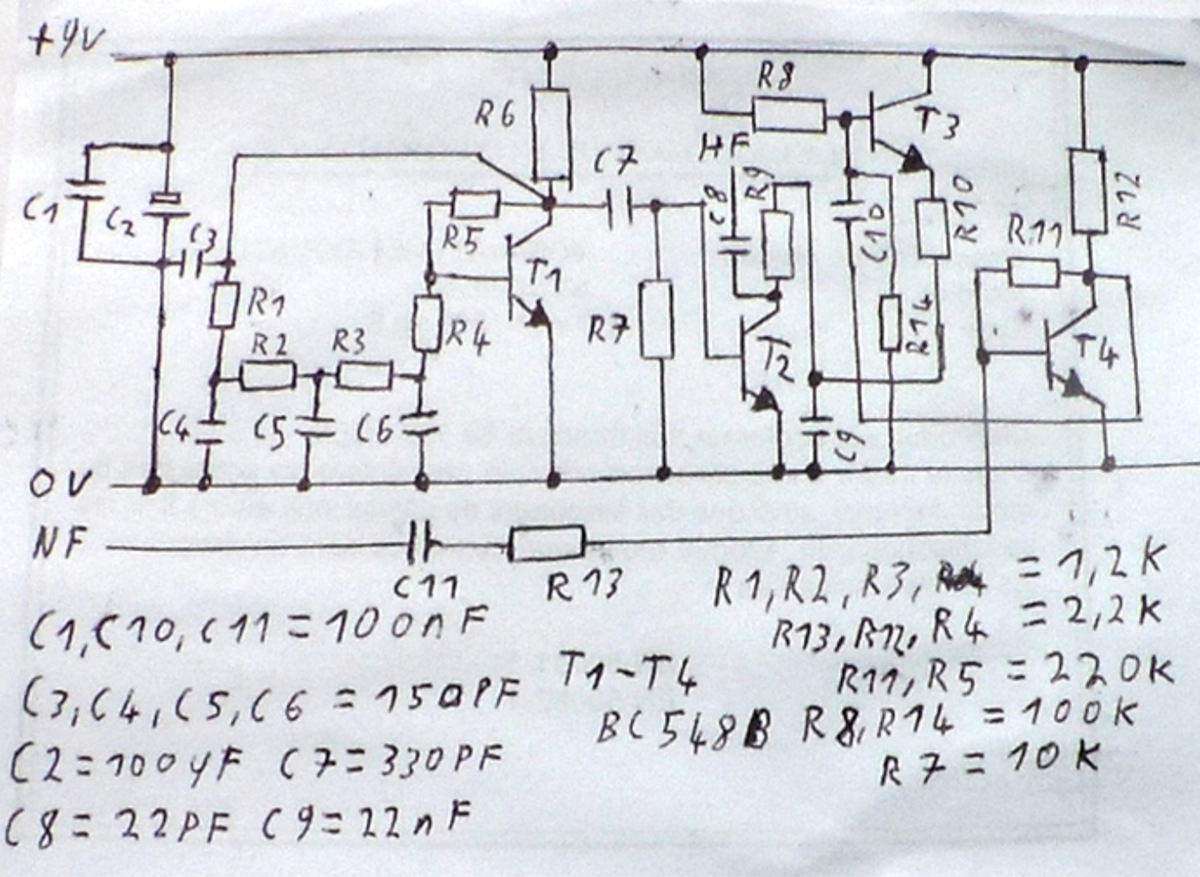 +9V
R8
R6
T3
HF
C7
C1
C2
C3
R5
C8
R9
C10
R10
R11
R12
R1
T1
R2
R3
R4
R7
T2
R14
T4
C4
C5
C6
C9
0V
NF
C11
R13
R1, R2, R3, = 1,2K
C1, C10, C11 = 100nF
R13, R12, R4 = 2,2K
T1-T4
R11, R5 = 220K
C3, C4, C5, C6 = 150PF
BC548B
R8, R14 = 100K
C2 = 100µF C7 = 330PF
R7 = 10K
C8 = 22PF C9 = 22nF